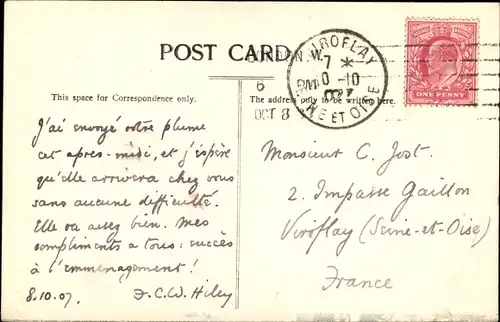 POST CARD
LONDON. W.
VIROFLAY
7 *
0-10
07
SEINE ET OISE
6
PM
OCT 8
ONE PENNY
This space for Correspondence only.
The address only to be written here.
J'ai envoyé votre plume
cet après-midi, et j'éspère
qu'elle arrivera chez vous
sans aucune difficulté.
Elle va assez bien. Mes
compliments a tous: succès
à l'emménagement!
8.10.07. F.C.W. Hiley
Monsieur C. Jost.
2. Impasse Gaillon
Viroflay (Seine-et-Oise)
France